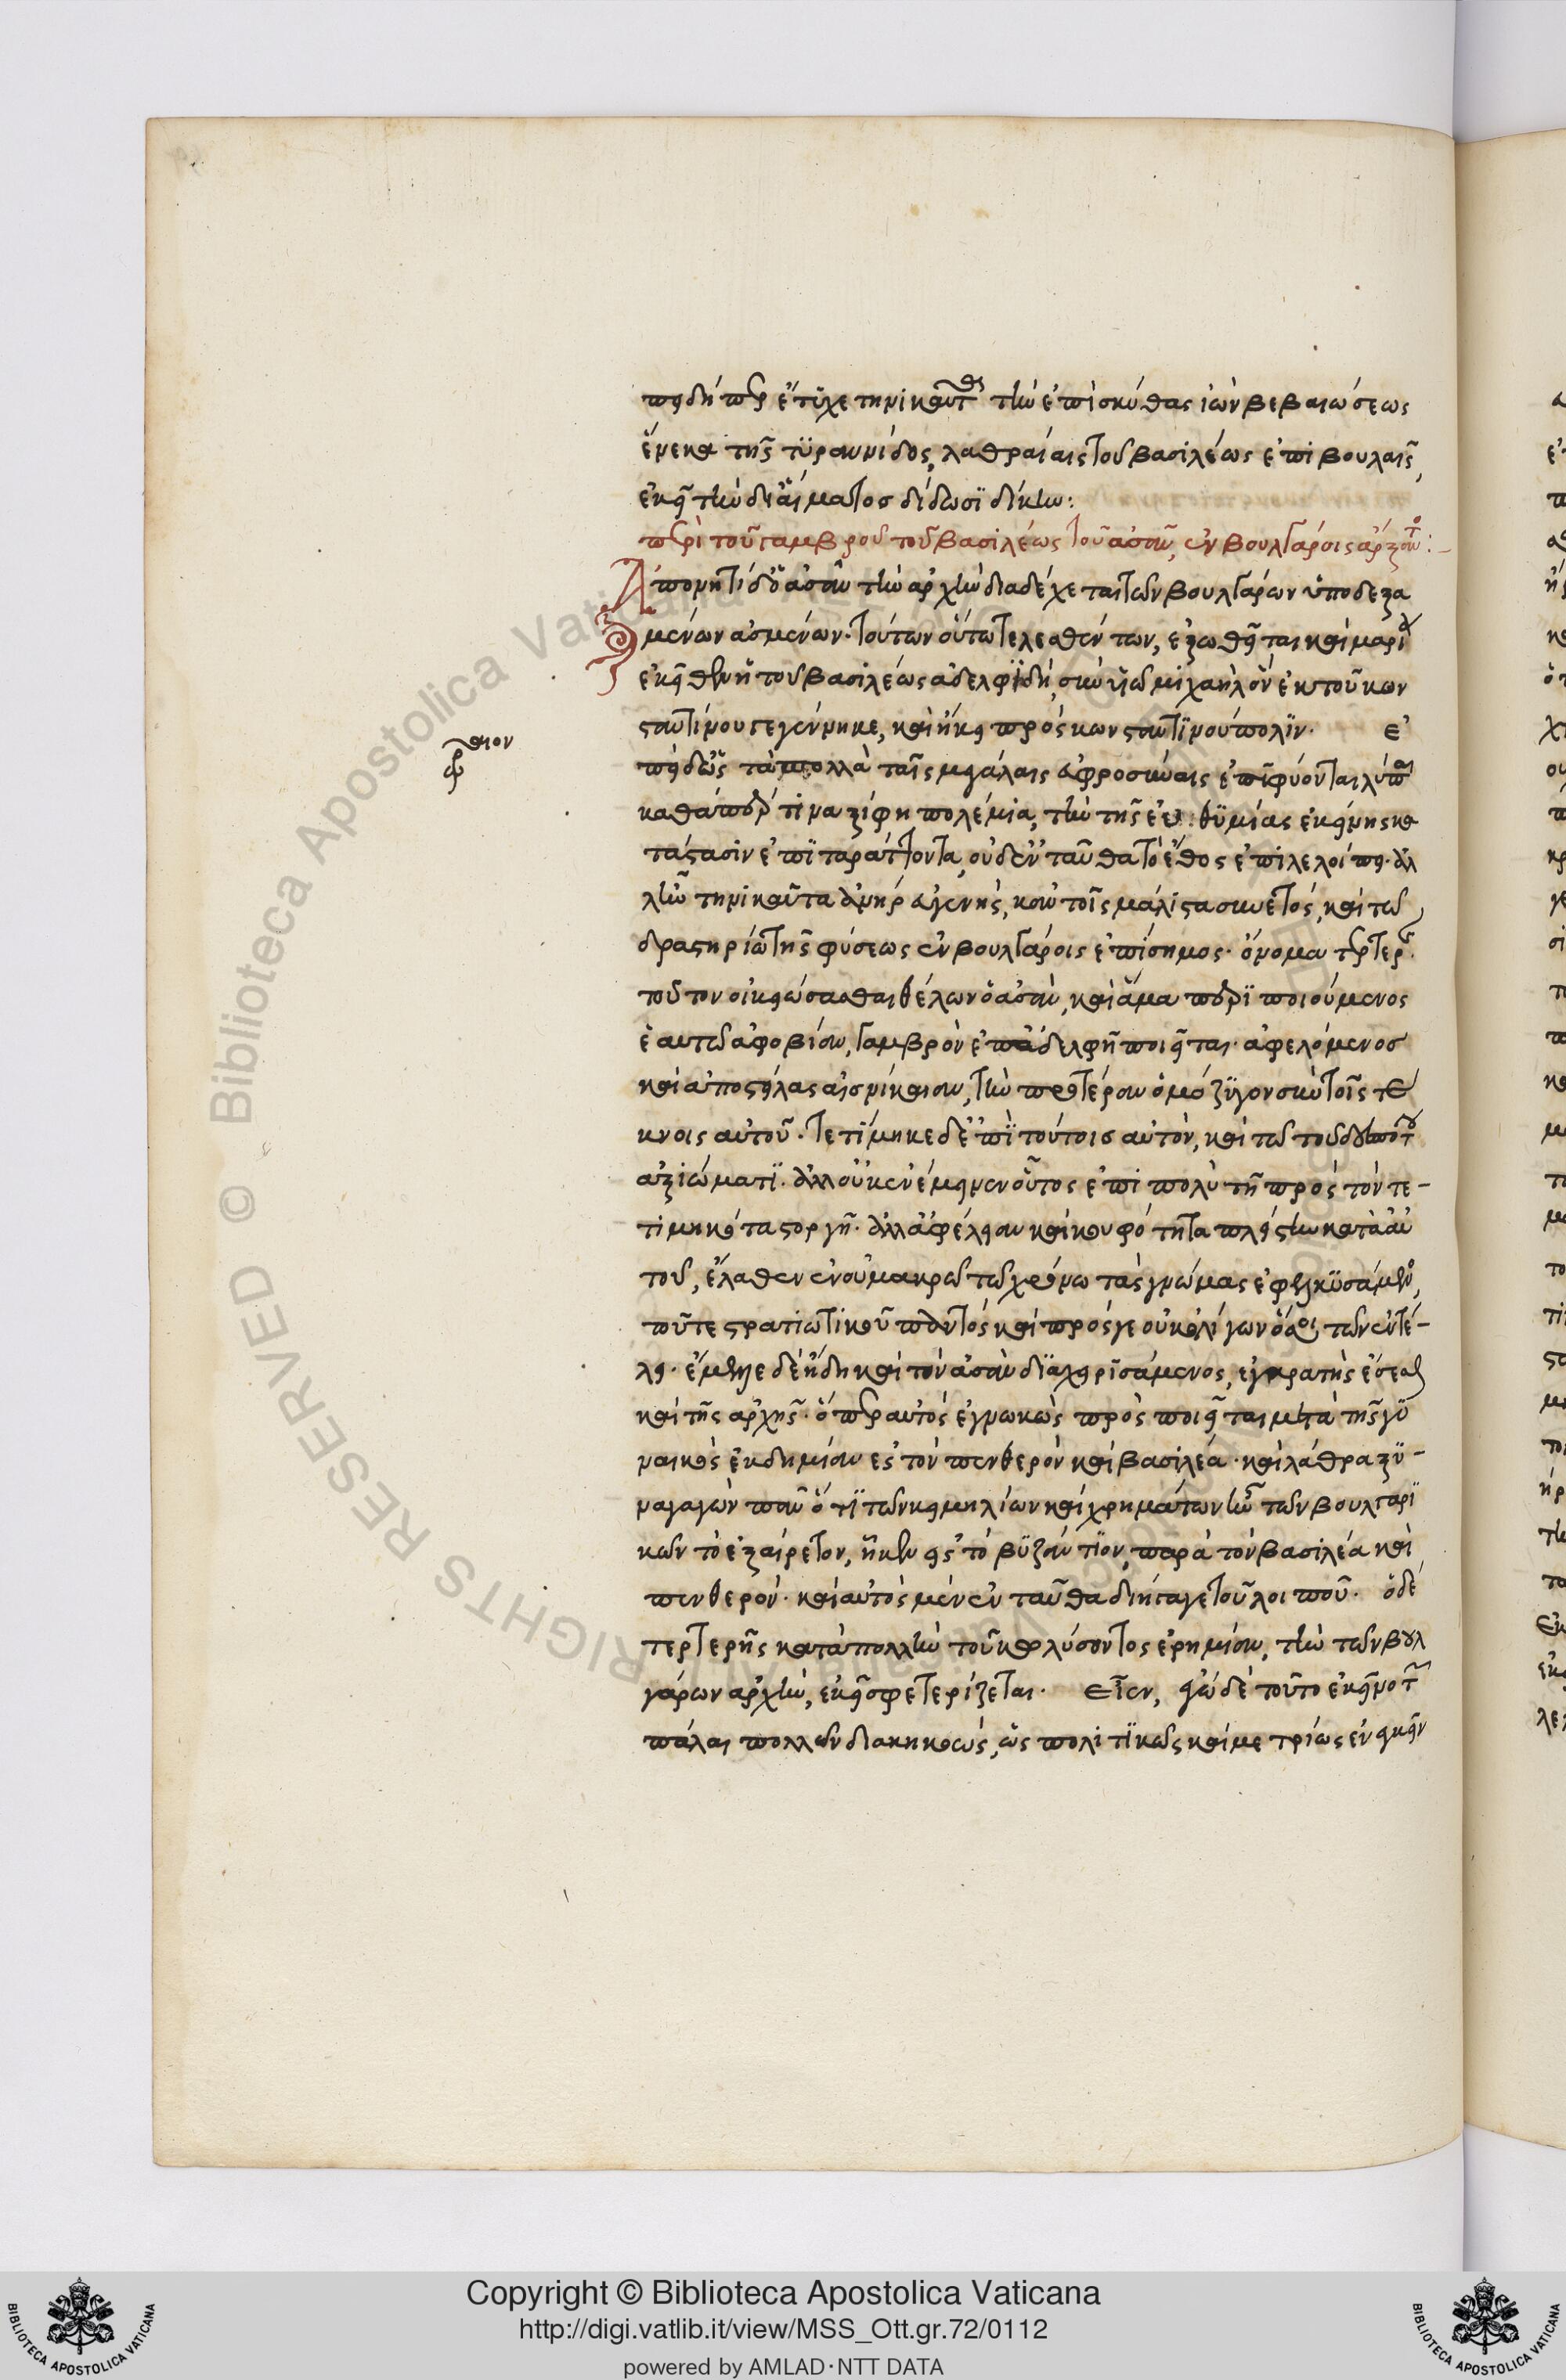 πειδήπερ ἔτυχε τηνικαῦτα τὴν ἐπὶ σκύθας ἰὼν βεβαιώσεως
ἕνεκα τῆς τυραννίδος, λαθραίαις τοῦ βασιλέως ἐπιβουλαῖς,
ἐκεῖ τὴν δι αἵματος δίδωσι δίκην:
περὶ τοῦ γαμβροῦ τοῦ βασιλέως τοῦ ἀσὰν, ἐν βουλγάροις ἄρξαντος:
Ἀπονητὶ δ ὁ ἀσὰν τὴν ἀρχὴν διαδέχεται τῶν βουλγάρων ὑποδεξα
μένων ἀσμένων. τούτων οὕτω τελεσθέντων, ἐξωθεῖται καὶ μαρία
ἐκεῖθεν ἡ τοῦ βασιλέως ἀδελφιδὴ, σὺν υἱῷ μιχαὴλ ὃν ἐκ τοῦ κων
σταντίνου γεγέννηκε, καὶ ἥκει πρὸς κωνσταντίνου πόλιν. ἐ
πεὶ δ ὡς τὰ πολλὰ ταῖς μεγάλαις ἀφροσύναις ἐπιφύονται λύπαι
καθάπερ τινα ξίφη πολέμια, τὴν τῆς εὐθυμίας ἐκείνης κα
τάστασιν ἐπιταράττοντα, οὐδ ἐνταῦθα τὸ ἔθος ἐπιλελοίπει. ἀλ
λ ἦν τηνικαῦτα ἀνὴρ εὐγενὴς, κἀν τοῖς μάλιστα συνετὸς, καὶ τῷ
δραστηρίῳ τῆς φύσεως ἐν βουλγάροις ἐπίσημος. ὄνομα τερτερῆς.
τοῦτον οἰκειώσασθαι θέλων ὁ ἀσὰν, καὶ ἅμα περιποιούμενος
ἑαυτῷ ἀφοβίαν, γαμβρὸν ἐπ ἀδελφῇ ποιεῖται. ἀφελόμενος
καὶ ἀποστείλας εἰς νίκαιαν, τὴν προτέραν ὁμόζυγον σὺν τοῖς τέ
κνοις αὐτοῦ. τετίμηκε δ ἐπὶ τούτοις αὐτὸν, καὶ τῷ τοῦ δεσπότου
ἀξιώματι. ἀλλ οὐκ ἐνέμεινεν οὗτος ἐπὶ πολὺ τῇ πρὸς τὸν τε-
τιμηκότα στοργῇ. ἀλλ ἀφέλειαν καὶ κουφότητα πλείστην κατὰ αὐ
τοῦ, ἔλαθεν ἐν οὐ μακρῷ τῷ χρόνῳ τὰς γνώμας ἐφελκυσάμενος,
τοῦ τε στρατιωτικοῦ παντὸς καὶ πρός γε οὐκ ὀλίγων ὅσοι τῶν ἐν τέ-
λει. ἔμελλε δὲ ἤδη καὶ τὸν ἀσὰν διαχειρισάμενος, ἐγκρατὴς ἔσεσθαι
καὶ τῆς ἀρχῆς. ὅπερ αὐτὸς ἐγνωκὼς προσποιεῖται μετὰ τῆς γυ
ναικὸς ἐκδημίαν ἐς τὸν πενθερὸν καὶ βασιλέα. καὶ λάθρα ξυ-
ναγαγὼν πᾶν ὅ τι τῶν κειμηλίων καὶ χρημάτων ἦν τῶν βουλγαρι
κῶν τὸ ἐξαίρετον, ἧκεν εἰς τὸ βυζάντιον, παρὰ τὸν βασιλέα καὶ
πενθερόν. καὶ αὐτὸς μὲν ἐνταῦθα διῆγαγε τοῦ λοιποῦ. ὁ δὲ
τερτερῆς κατὰ πολλὴν τοῦ κωλύσοντος ἐρημίαν, τὴν τῶν βουλ
γάρων ἀρχὴν, ἐκεῖ σφετερίζεται. Εἶεν, ἐγὼ δὲ τοῦτο ἐκεῖνο τὸ
πάλαι πολλῶν διακηκοὼς, ὡς πολιτικῶς καὶ μετρίως ἐνεγκεῖν
ὡραῖον